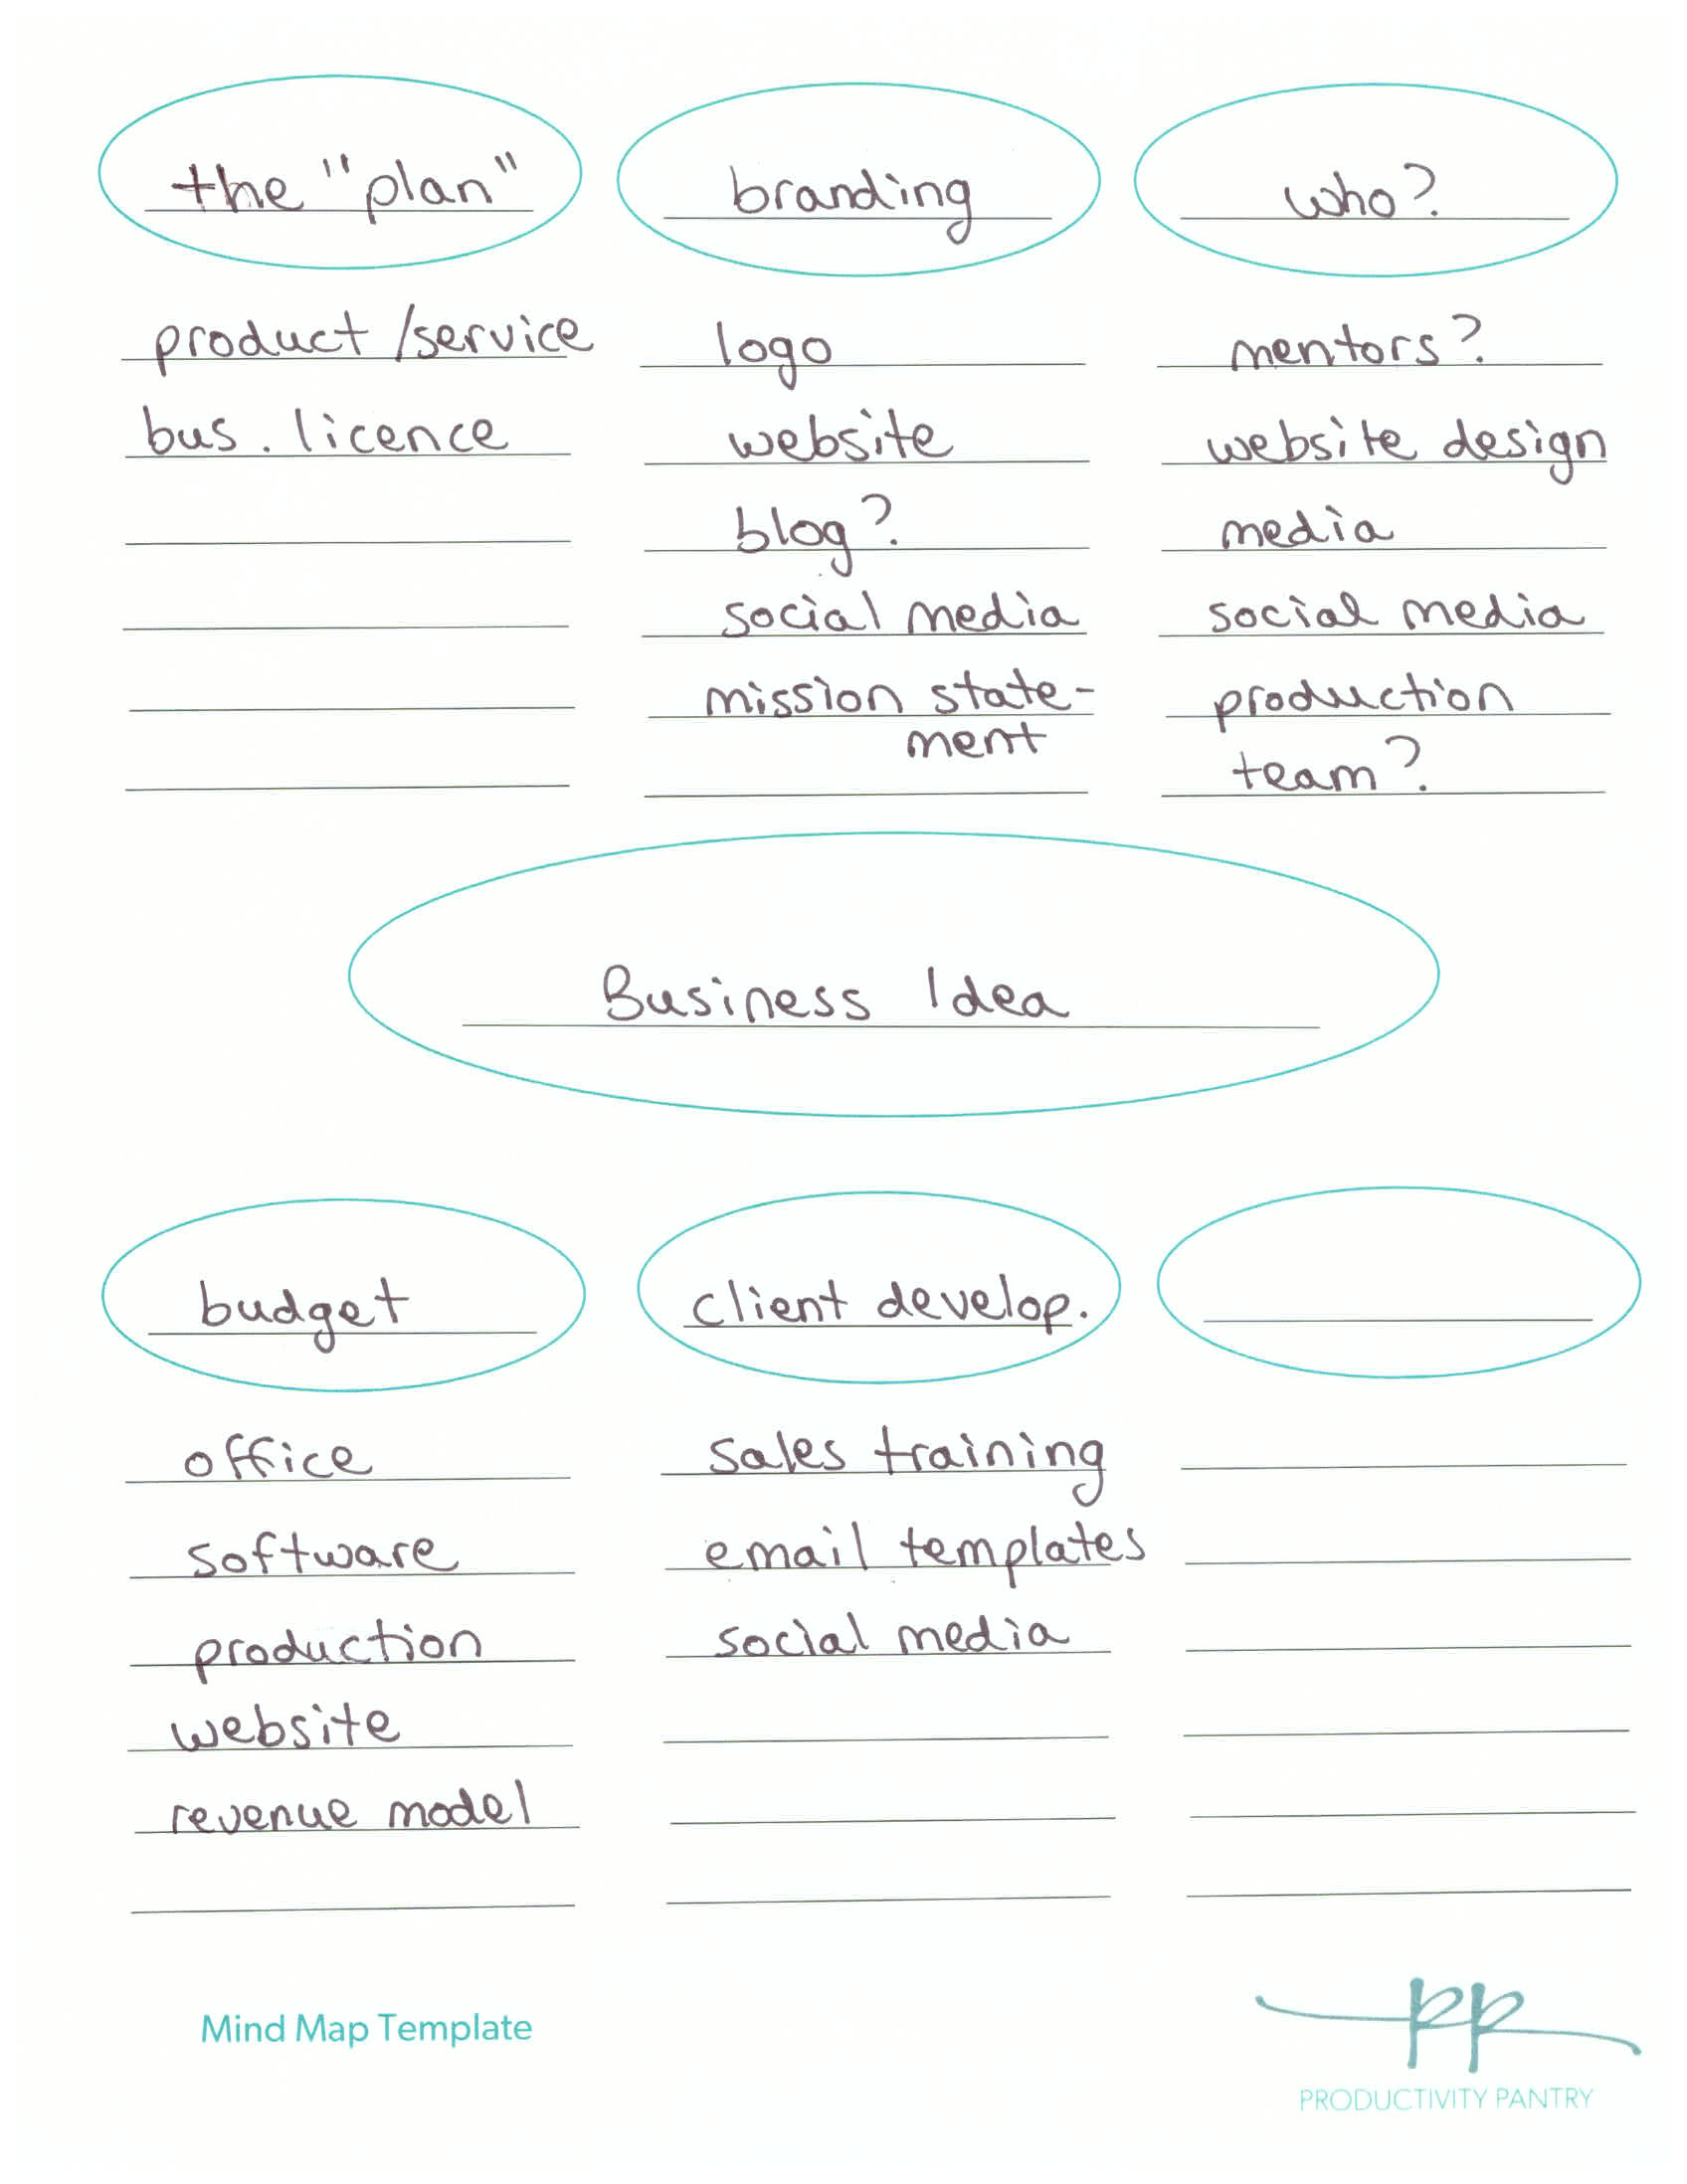 the "plan"
product /service
bus. licence
branding
logo
website
blog?
social media
mission state-
ment
who?
mentors?
website design
media
social media
production
team?
Business Idea
budget
office
software
production
website
revenue model
client develop.
sales training
email templates
social media
Mind Map Template
pp
PRODUCTIVITY PANTRY